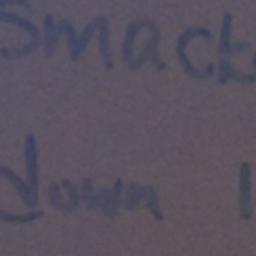 Smack
down 1